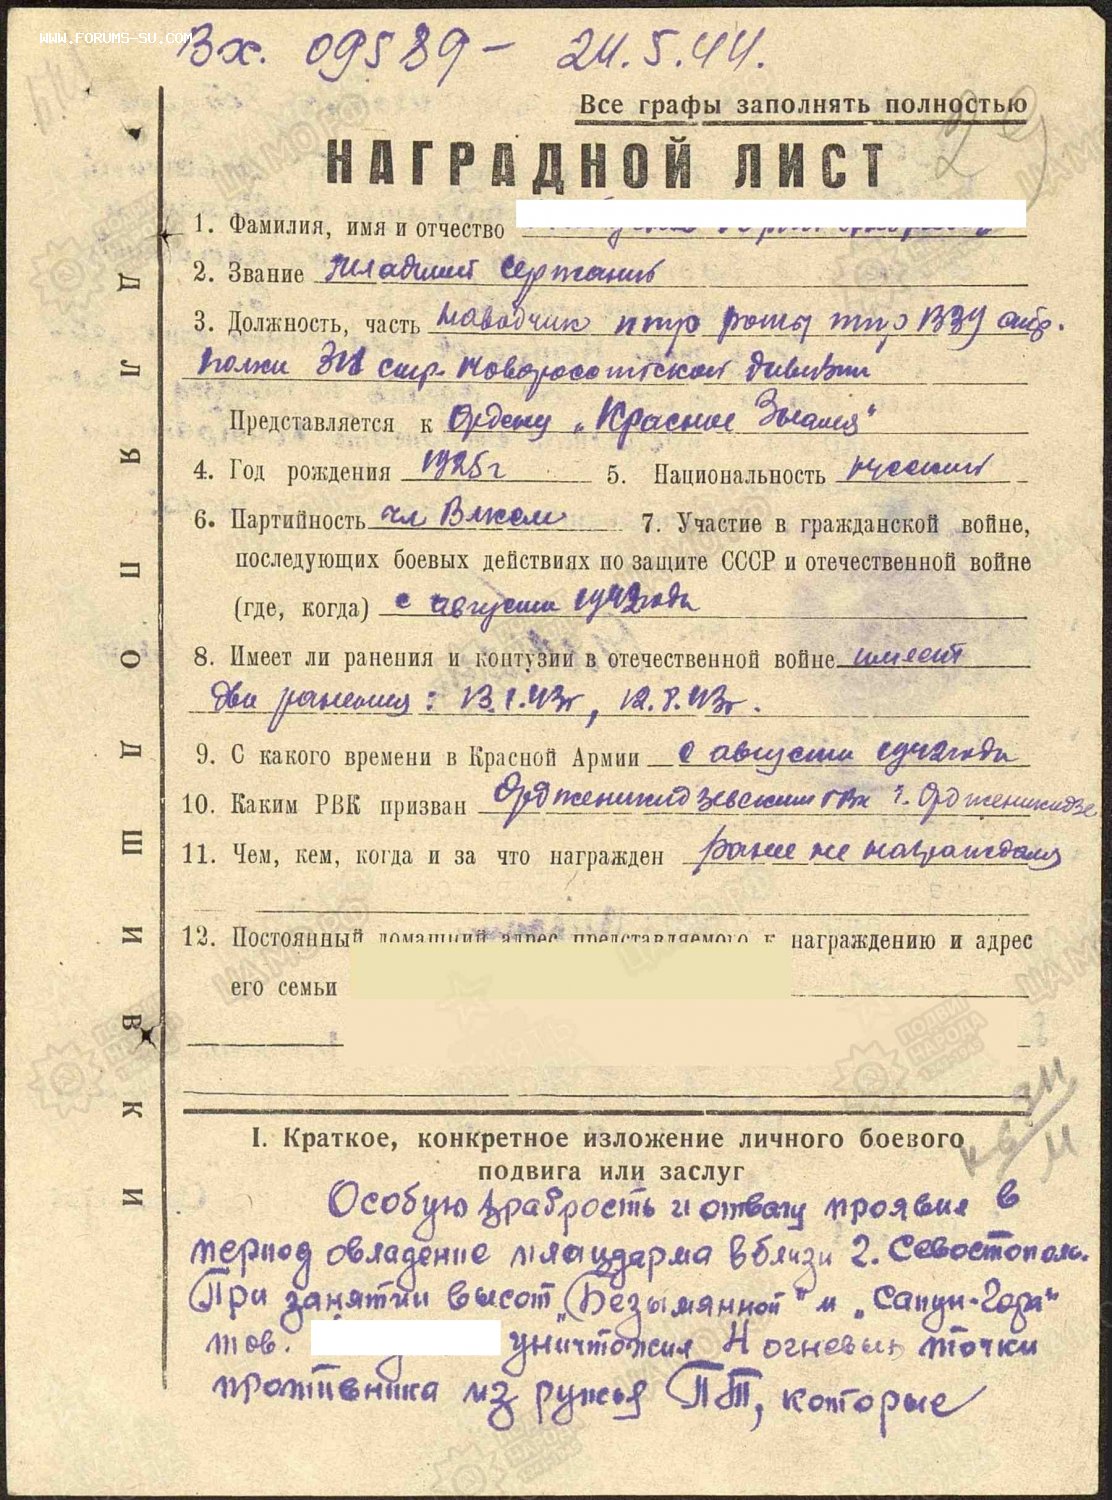 WWW.FORUMS-SU.COM
Вх. 09589 — 24.5.44.
Все графы заполнять полностью
29
НАГРАДНОЙ ЛИСТ
1. Фамилия, имя и отчество
2. Звание Младший сержант
3. Должность, часть Наводчик птр роты птр 1339 стр.
полка 318 стр. Новоросийской дивизии
Представляется к Ордену „Красное Знамя"
4. Год рождения 1925г 5. Национальность русский
6. Партийность чл Влксм 7. Участие в гражданской войне,
последующих боевых действиях по защите СССР и отечественной войне
(где, когда) с августа 1942года
8. Имеет ли ранения и контузии в отечественной войне имеет
два ранения: 13.1.43г, 12.8.43г.
9. С какого времени в Красной Армии с августа 1942года
10. Каким РВК призван Орджени­кидзевским г. Ордженикидзе
11. Чем, кем, когда и за что награжден ранее не награждался
12. Постоянный домашний адрес представляемого к награждению и адрес
его семьи
I. Краткое, конкретное изложение личного боевого
подвига или заслуг
Особую храбрость и отвагу проявил в
период овладение плацдарма вблизи г. Севостополь.
При занятии высот „Безымянной" и „Сапун-Гора"
тов. уничтожил 4 огневых точки
противника из ружья ПТ, которые
ДЛЯ ПОДШИВКИ
ЦАМО РФ
ПОДВИГ НАРОДА